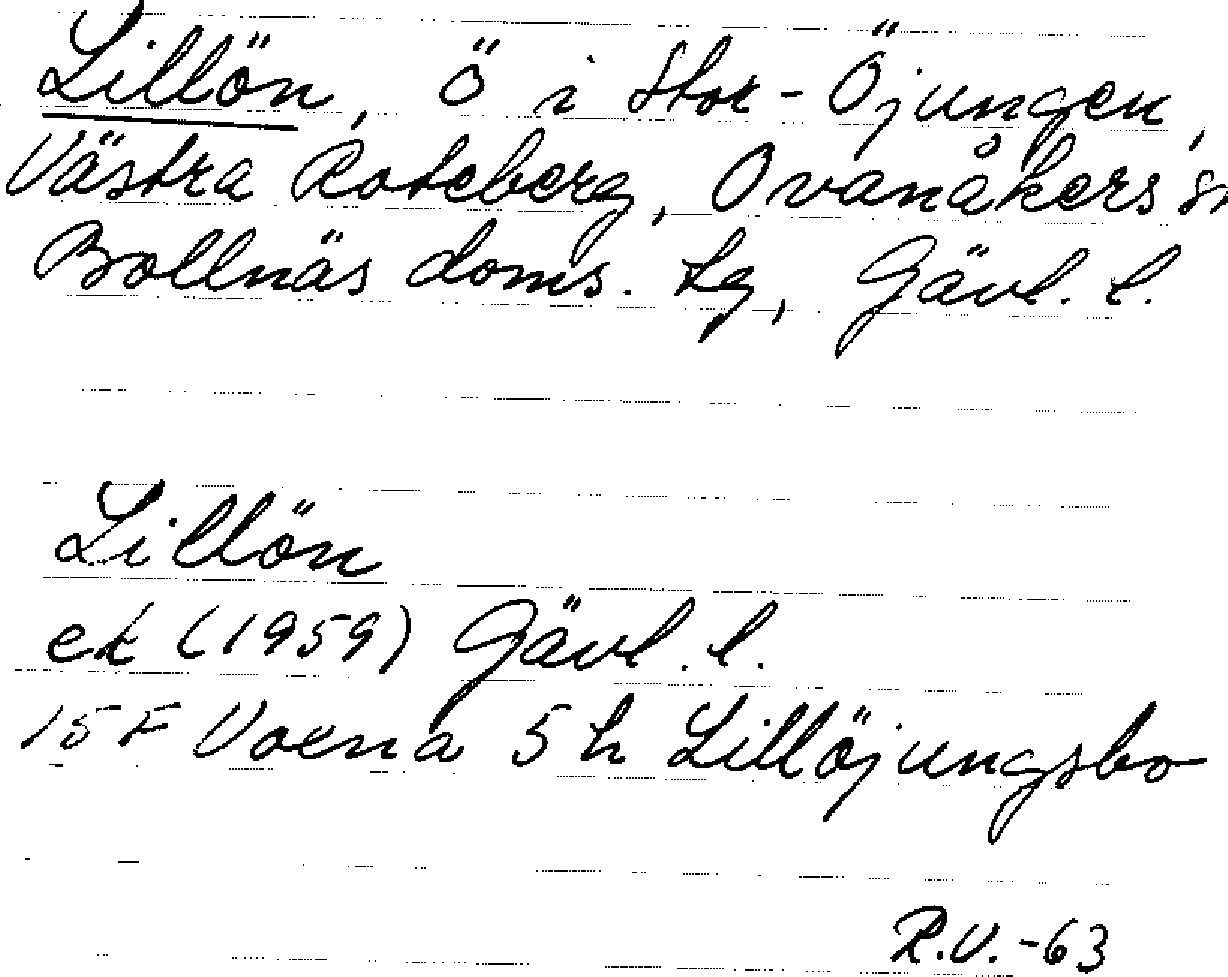 Lillön, ö i Stor-Öjungen,
Västra Roteberg, Ovanåkers sn
Bollnäs doms. tg, Gävl. l.
Lillön
ek (1959) Gävl. l.
15 F Voxna 5 h Lillöjungsbo
R.V. -63